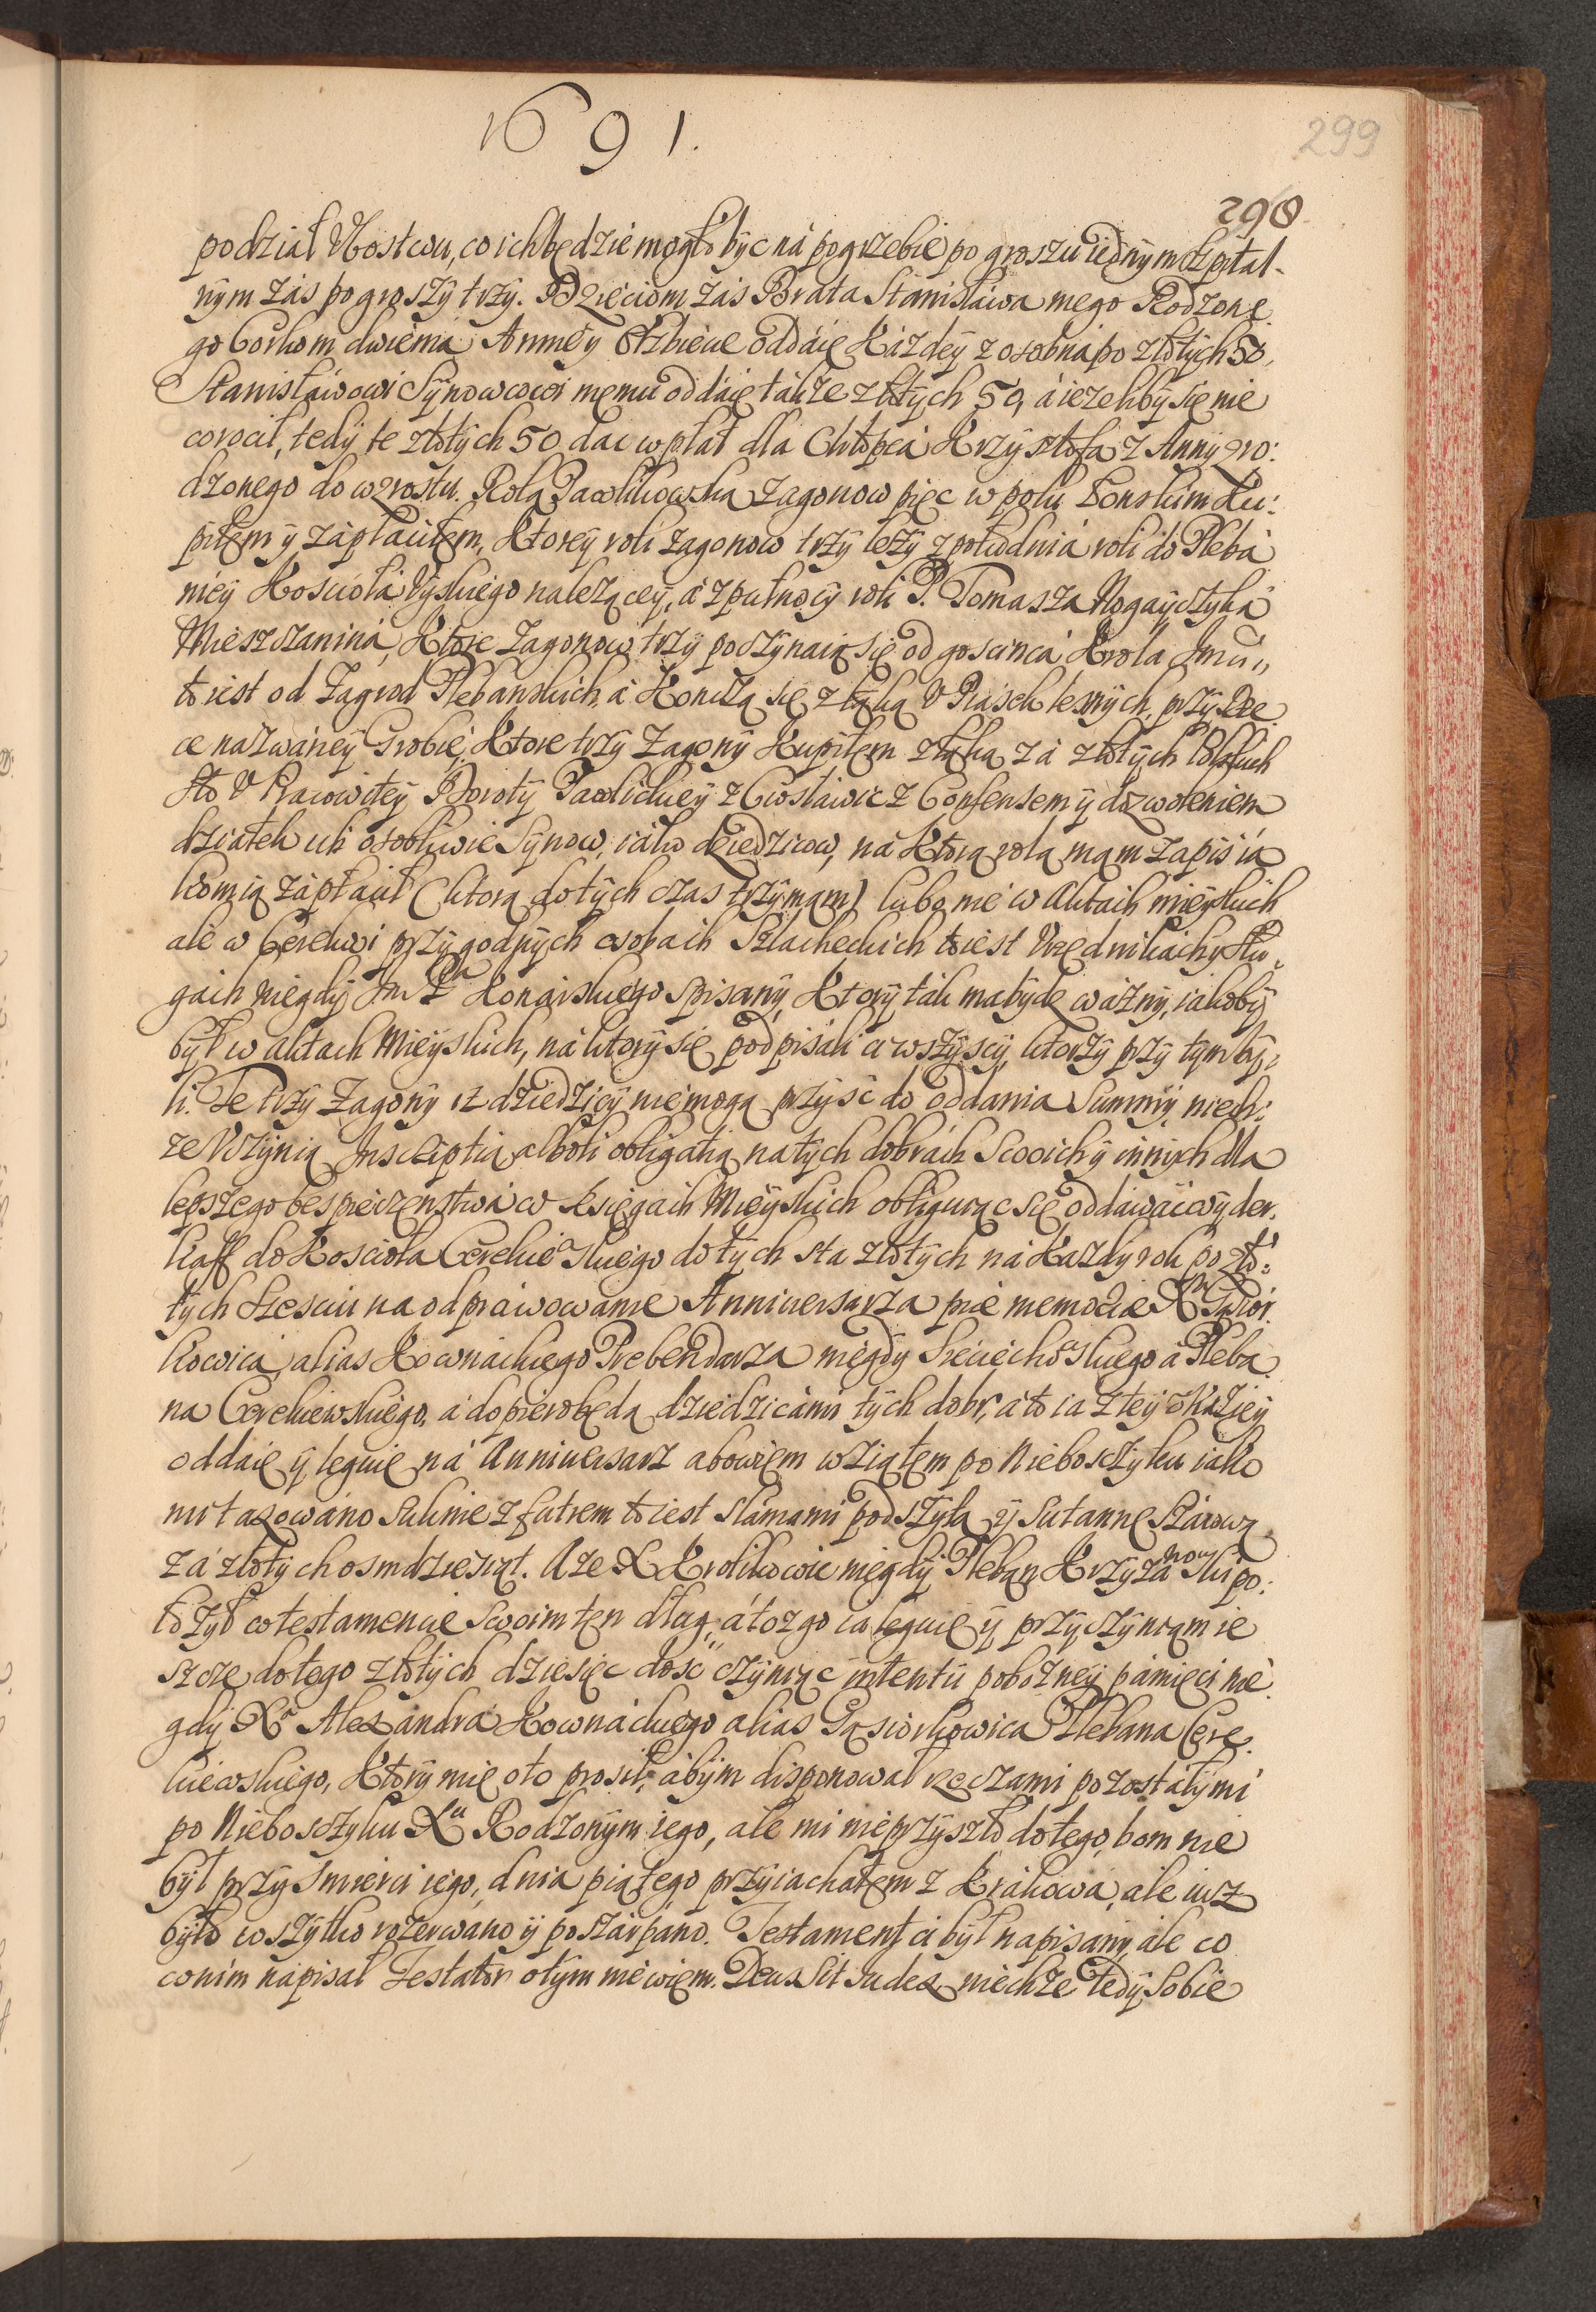 1691.
299
298
podział Vbostwu, co ich będzie mogło być na pogrzebie po groszu iednym szpital-
nym zas po groszy trzy. Dzieciom zas Brata Stanisława mego Rodzone
go Corkom dwiema Annie y Elzbiecie oddaię każdey z osobna po złotych 50,
Stanisławowi Synowcowi memu oddaię takze złotych 50, a iezeliby się nie
wrocił, tedy te złotych 50 dać wpłat dla Chłopca Krzysztofa z Anny zro:
dzonego do wzrostu. Rolą Pawlikowską zagonow pięc w polu Ku:
piłem y zapłaciłem, Ktorey roli zagonow trzy lezy z południa roli do Pleba
niey Kosciola należącey, a z pułnocy roli P. Tomasza Nogayczyka
Mieszczanina, Ktore zagonow trzy poczynaią się od goscinca Krola Jmci„
to iest od Zagrod Plebanskich a Konczą się z łąką V Piasek lesnych, przy Rze
ce nazwaney Grobie, Ktore trzy zagony Kupiłem z łąką za złotych Polskich
sto V Racowitey Doroty Pawlickiey z Cosławic z Consensem y dozwoleniem
dziatek iey osobliwie Synow, iako dziedzicow, na Ktorą rolą mam zapis ia
kom ią zapłacił (ktorą do tych czas trzymam) lubo nie w Aktach mieyskich
ale w Cerekwi przy godnych osobach Szlacheckich to iest Vrzędnikach y Słu„
gach niegdy Jm Pa Konarskiego spisany, Ktory tak ma bydz wazny, iakoby
był w aktach Mieyskich, na ktory się podpisali ci wszyscy, ktorzy przy tym by„
li. Te trzy Zagony iz dziedzicy nie mogą przyść do oddania Summy, niech:
ze Vczynią Inscriptią alboli obligatią na tych dobrach swoich y innych dla
lepszego bespieczenstwa w księgach Mieyskich obliguiąc się oddawać wyder.
kaff do Kosciola Cerekiewskiego do tych sta złotych na Kazdy rok po zło:
tych szesciu na odprawowanie Anniuersarza piae memoriae Xa Gąsior
kowica, alias Kownackiego Prebendarza niegdy Sieciechowskiego a Pleba
na Cerekiewskiego, a dopiero będą dziedzicami tych dobr, a to ia z tey okaziey
oddaię y leguię na Anniuersarz abowiem wziąłem po Nieboszczyku iako
mi taxowano suknie z futrem to iest slamami podszytą y Sutannę szarową
za złotych osmdziesiąt. A ze X Krolikowic niegdy Pleban Krzyzanowski po:
łozył w testamencie swoim ten dług, a toz go ia leguię y przyczyniam ie
szcze do tego złotych dziesięc dość czyniąc intentii pobozney pamięci nie
gdy Xa Alexandra Kownackiego alias Gąsiorkowica Plebana Cere.
kiewskiego, Ktory mię o to prosił, abym disponował rzeczami pozostałymi
po Nieboszczyku Xu Rodzonym iego, ale mi nie przyszło do tego, bom nie
był przy smierci iego, dnia piątego przyiachałem z Krakowa, ale iusz
było wszytko rozerwano y poszarpano. Testament ci był napisany, ale co
co nim napisał Testator o tym nie wiem. Deus sit Iudex niechze tedy sobie